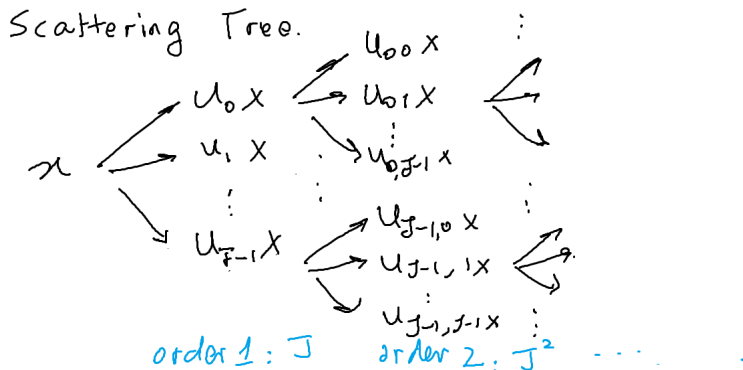 Scattering Tree.
U₀₀ X
U₀ X
U₀₁ X
U₁ X
U₀,J-1 X
x
U_J-1 X
U_J-1,0 X
U_J-1,1 X
U_J-1,J-1 X
order 1 : J order 2 : J² ....